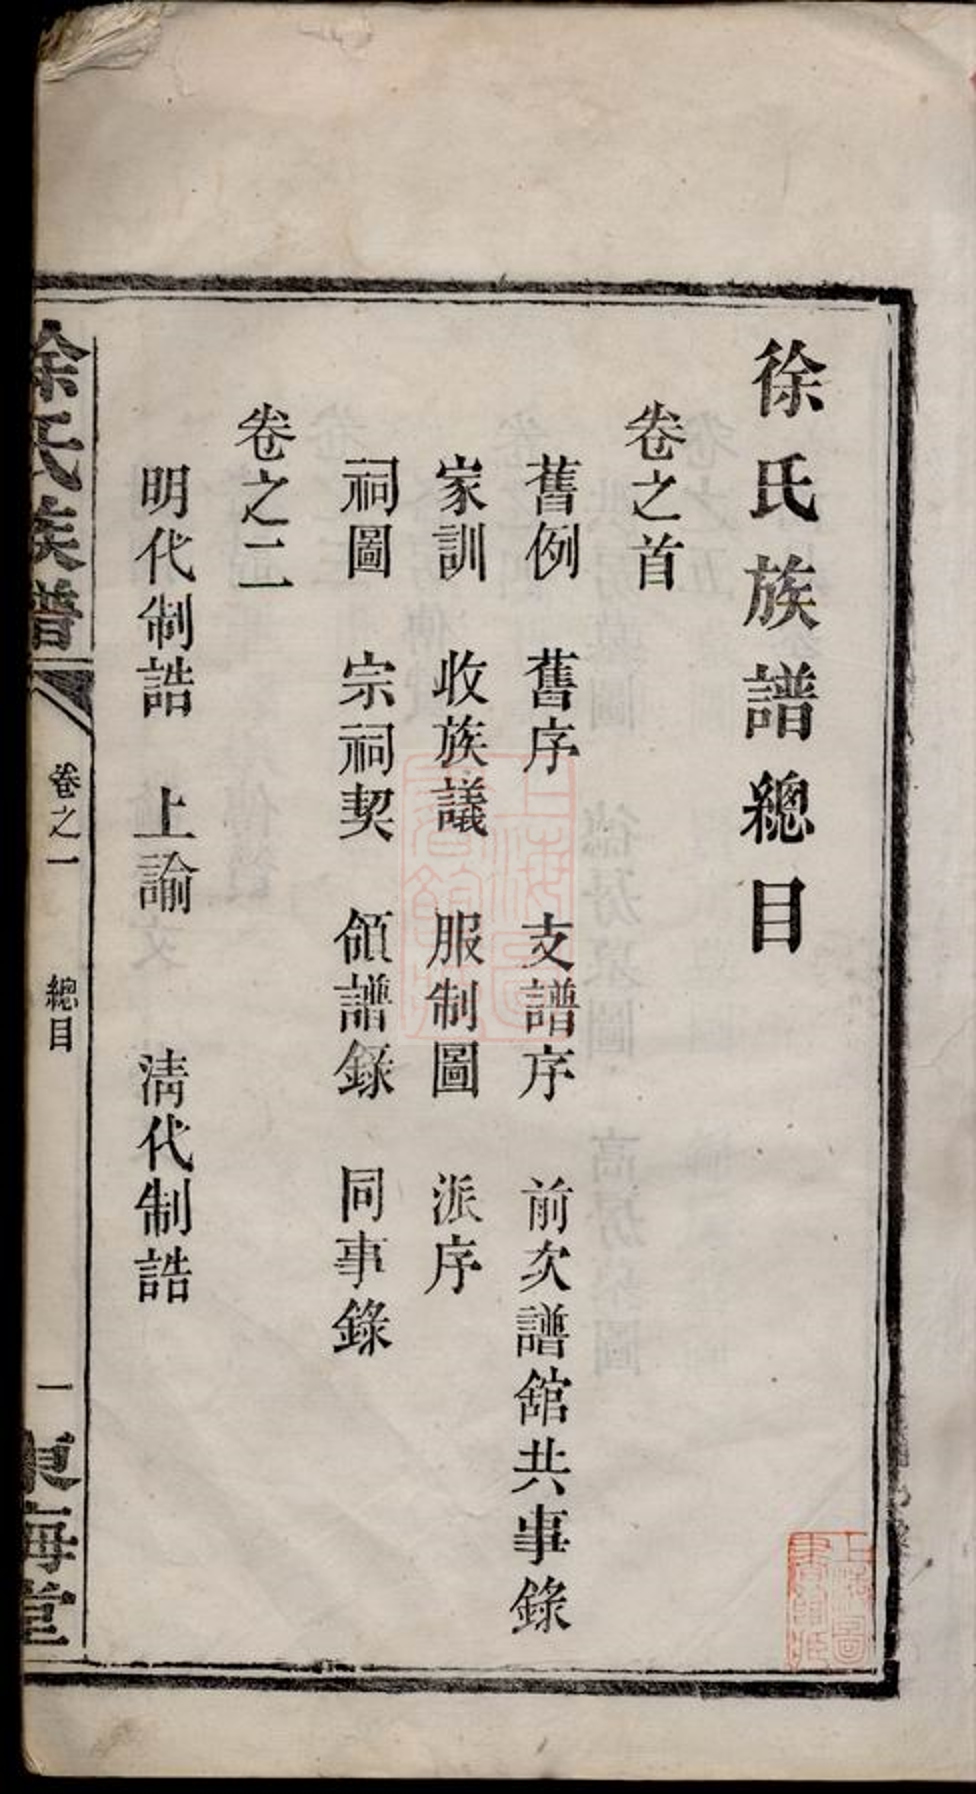 徐氏族譜總目
卷之首
舊例 舊序 支譜序 前次譜舘共事錄
家訓 收族議 服制圖 派序
祠圖 宗祠契 領譜錄 同事錄
卷之二
明代制誥 上諭 淸代制誥
徐氏族譜 卷之一 總目 一 東海堂
上海圖書館藏